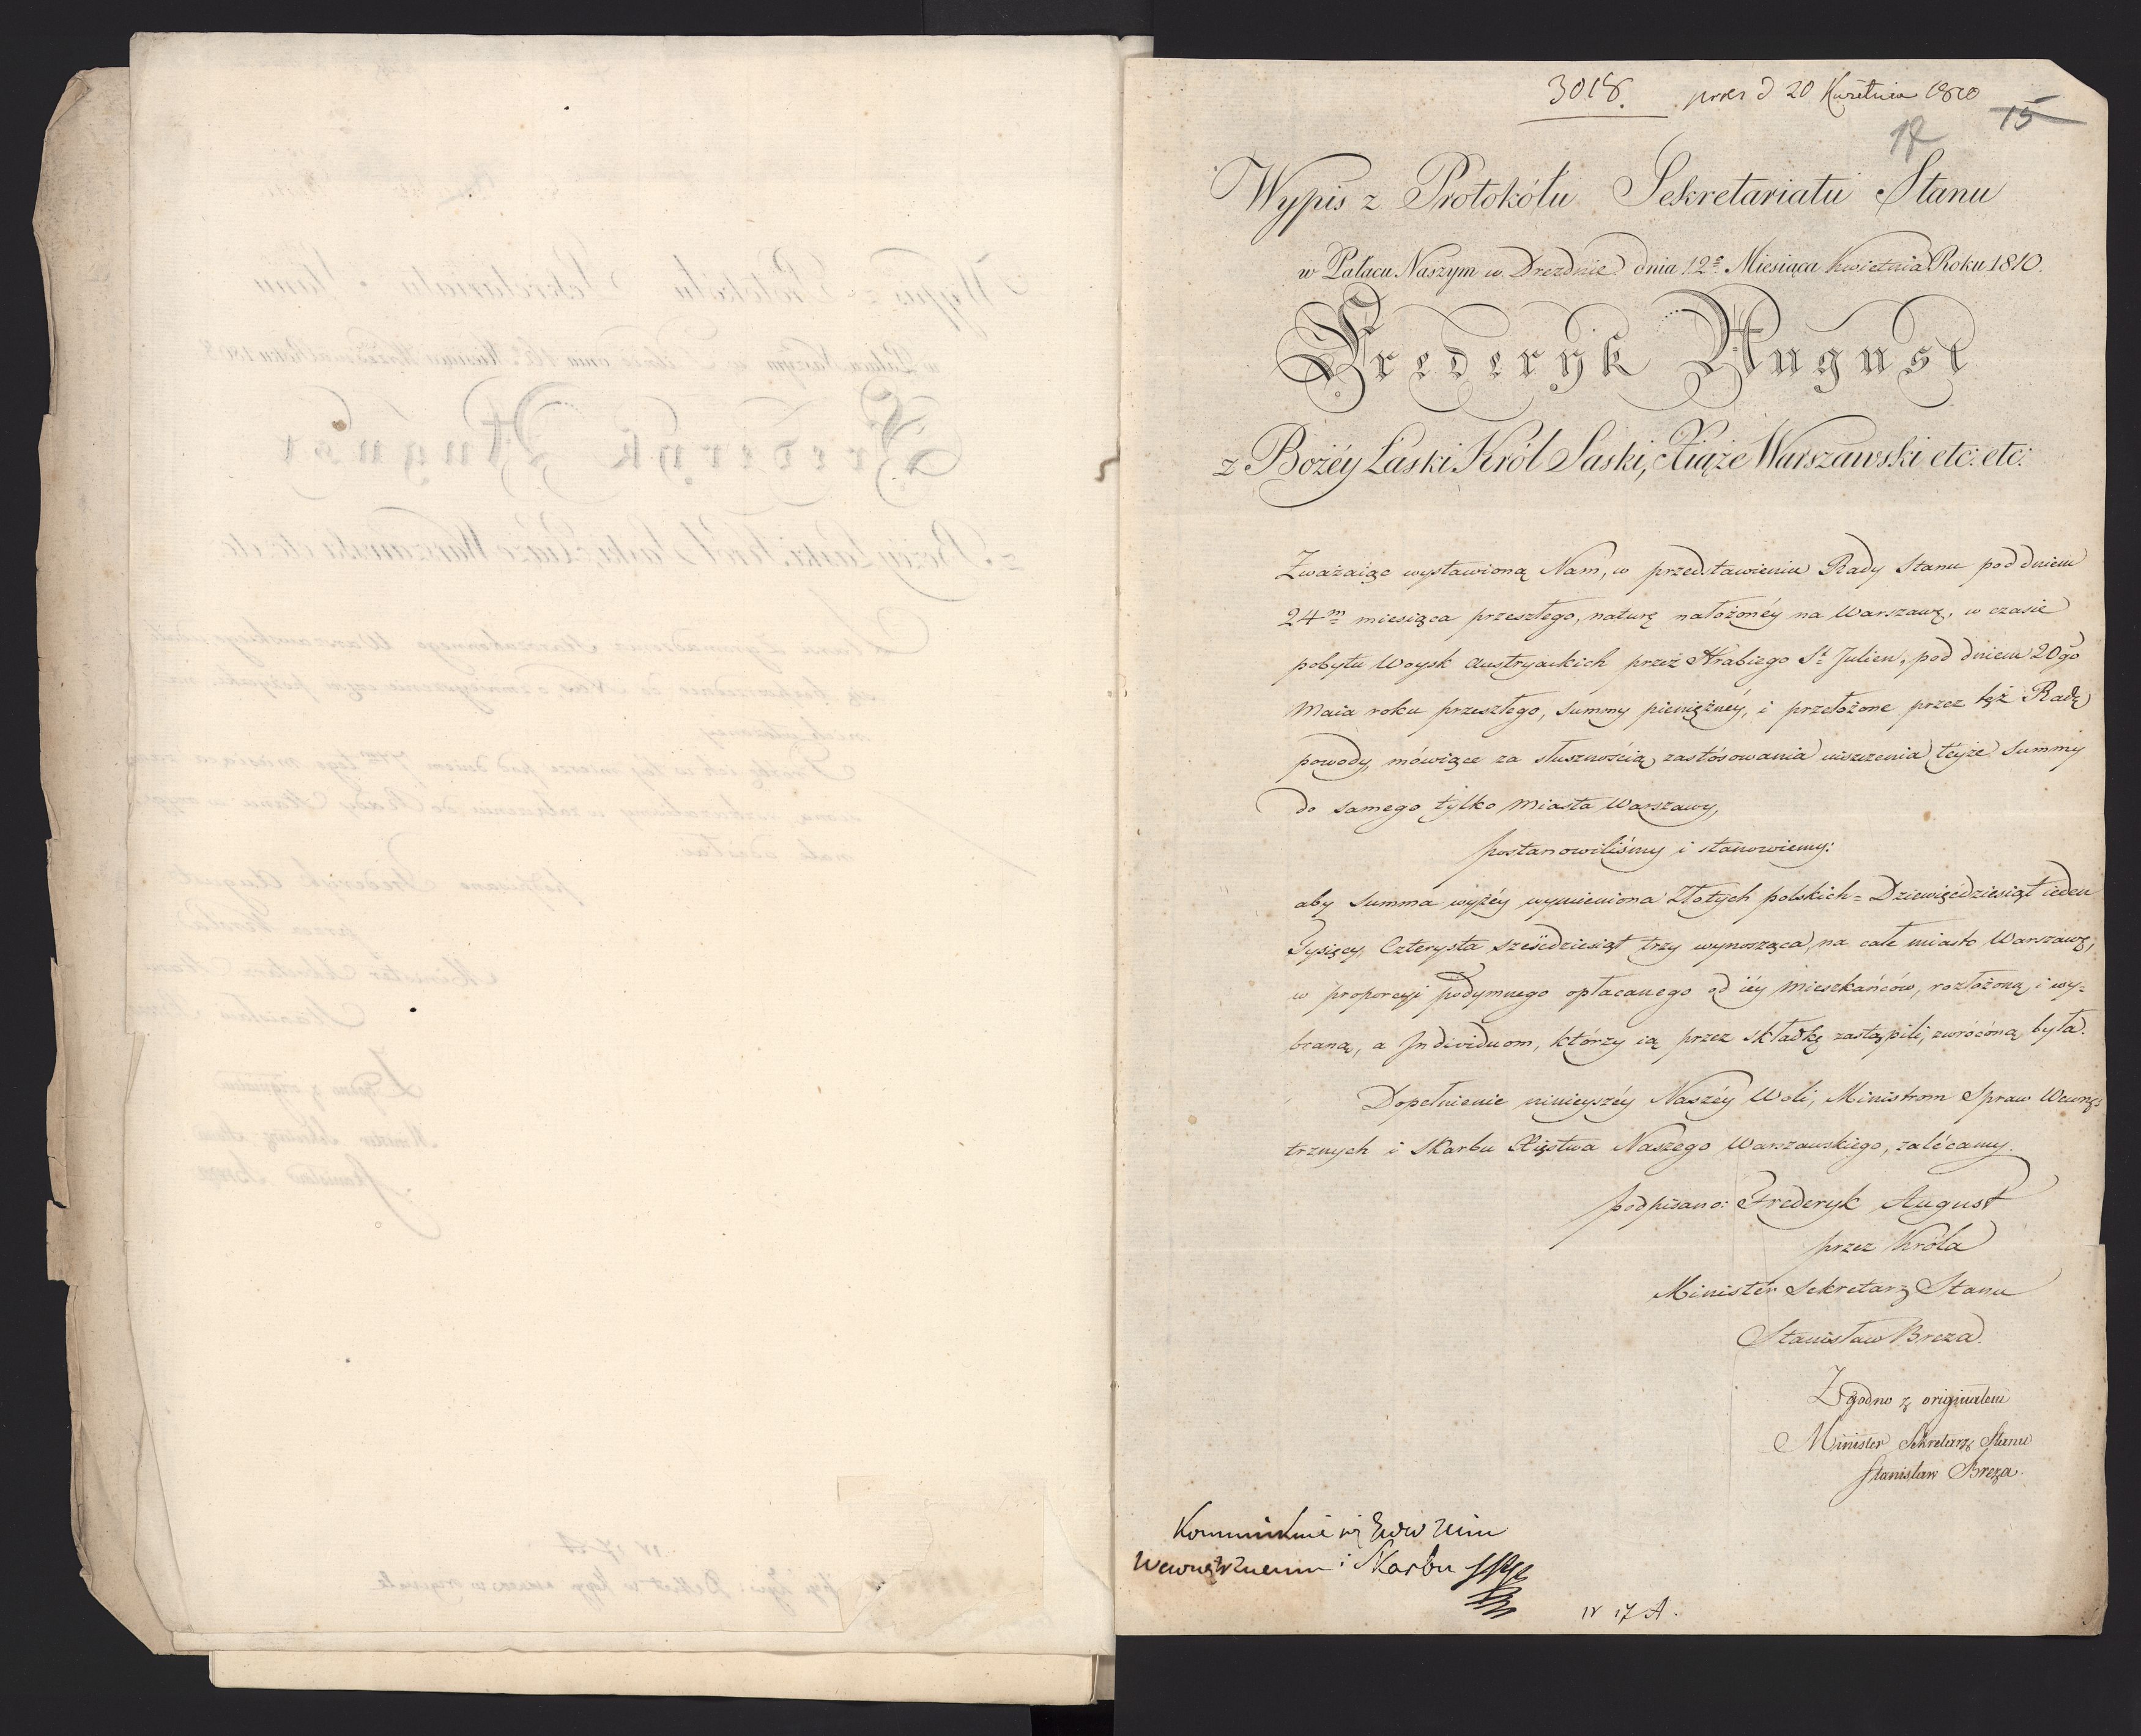 3018. pres d 20 Kwietnia 1810
15
17
Wypis z Protokółu Sekretariatu Stanu
w Pałacu Naszym w Dreznie dnia 12º Miesiąca Kwietnia Roku 1810.
Frederyk August
z Bożéy Łaski Król Saski, Xiąże Warszawski etc: etc:
Zważaiąc wystawioną Nam, w przedstawieniu Rady Stanu pod dniem
24m miesiąca przeszłego, naturę nałożonéy na Warszawę, w czasie
pobytu Woysk Austryackich przez Hrabiego St Julien, pod dniem 20go
Maia roku przeszłego, summy pieniężnéy, i przełożone przez tęż Radę
powody, mówiące za słusznością zastósowania uiszczenia téyże summy
do samego tylko Miasta Warszawy,
postanowiliśmy i stanowiemy:
aby summa wyżéy wymieniona Złotych polskich = Dziewięćdziesiąt ieden
Tysięcy, Czterysta sześćdziesiąt trzy wynosząca, na całe miasto Warszawę,
w proporcyi podymnego opłacanego od iéy Mieszkańców, rozłożoną i wy=
braną, a Individuom, którzy ią przez składkę zastąpili, zwróconą była.
Dopełnienie ninieyszéy Naszéy Woli, Ministrom Spraw Wewnę=
trznych i Skarbu Xięstwa Naszego Warszawskiego, zalécamy.
podpisano: Frederyk August
przez Króla
Minister Sekretarz Stanu
Stanisław Breza.
Zgodno z originałem
Minister Sekretarz Stanu
Stanisław Breza.
Wewnętrznemu i Skarbu
17 A.